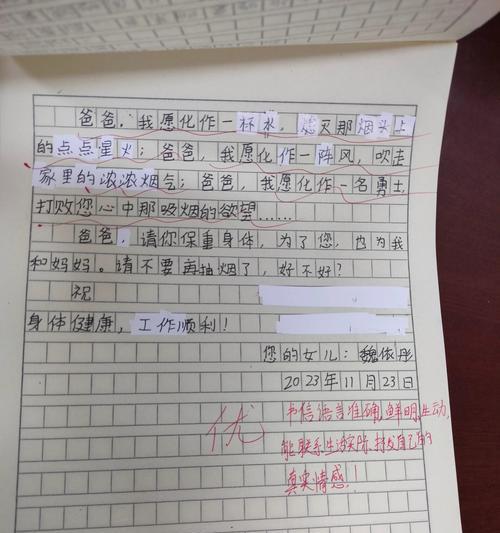 爸爸,我愿化作一杯水,熄灭那烟头上
的点点星火;爸爸,我愿化作一阵风,吹走
家里的浓浓烟气;爸爸,我愿化作一名勇士,
打败您心中那吸烟的欲望……
爸爸,请你保重身体,为了您,也为我
和妈妈。请不要再抽烟了,好不好?
祝
身体健康,工作顺利!
您的女儿:魏依彤
2023年11月23日
优
书信语言准确,鲜明生动,
能联系生活实际,抒发自己的
真实情感!